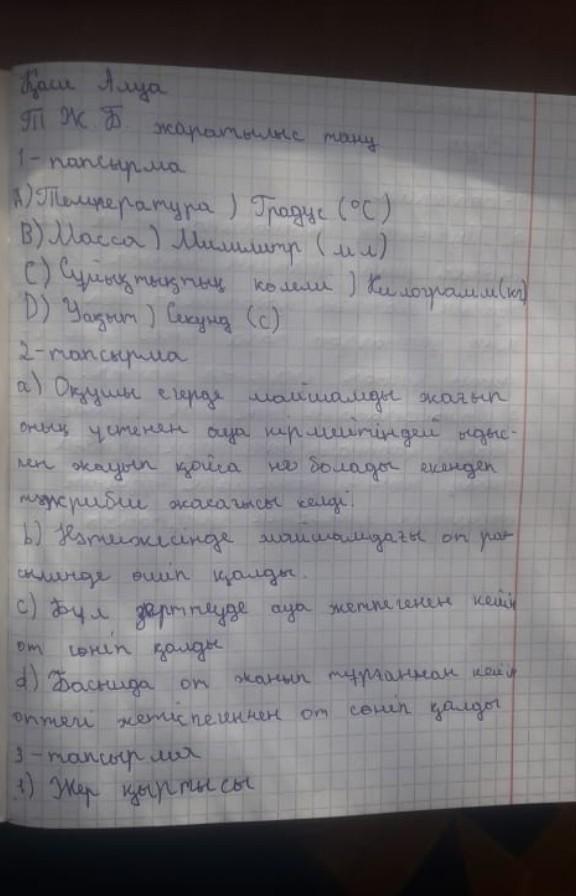 Қасн Алуа
Т Ж Б. жаратылыс тану
1-тапсырма
А) Температура) Градус (°С)
В) Масса) Милилитр (мл)
С) Сұйықтықтың көлемі) Килограмм(кг)
D) Уақыт) Секунд (с)
2-тапсырма
а) Оқушы егерде майшамды жағып
оның үстенен ауа кірмейтіндей ыдыс-
пен жауып қойса не болады екендеп
тәжрибие жасағысы келді.
b) Нәтижесінде майшамдағы от
өшіп қалды.
с) Бұл зерттеуде ауа жетпегенен кейін
от сөніп қалды
d) Басында от жанып тұрғаннан кейін
оттегі жетіспегиннен от сөніп қалды
3-тапсырма
1) Жер қыртысы